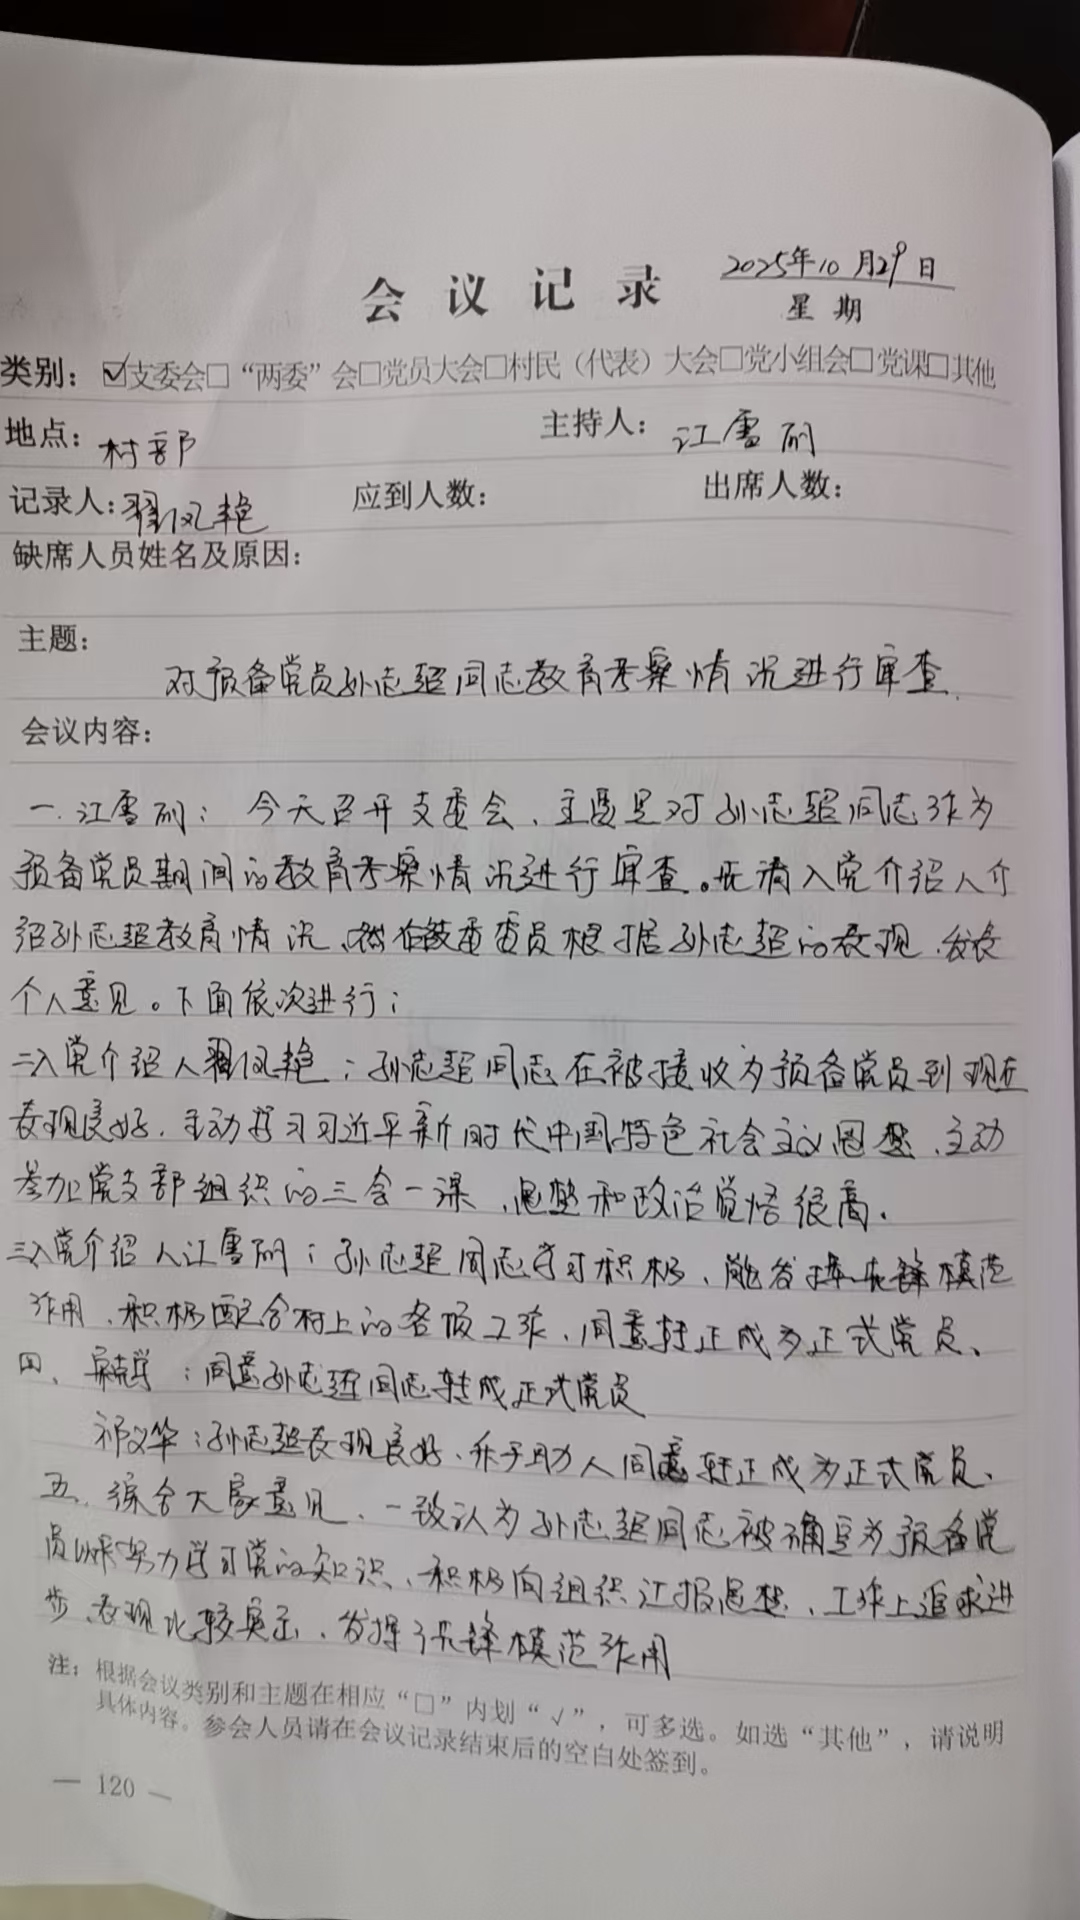 会议记录
2025年10月29日
星期
类别：☑支委会□“两委”会□党员大会□村民（代表）大会□党小组会□党课□其他
地点：村部 主持人：江雪丽
记录人：翟凤艳 应到人数： 出席人数：
缺席人员姓名及原因：
主题：
对预备党员孙志超同志教育考察情况进行审查.
会议内容：
一.江雪丽：今天召开支委会、主要是对孙志超同志作为
预备党员期间的教育考察情况进行审查。先请入党介绍人介
绍孙志超教育情况、然后委员根据孙志超的表现、发表
个人意见。下面依次进行；
二入党介绍人翟凤艳：孙志超同志在被接收为预备党员到现在
表现良好.主动学习习近平新时代中国特色社会主义思想、主动
参加党支部组织的三会一课、思想和政治觉悟很高.
三入党介绍人江雪丽；孙志超同志学习积极、能发挥先锋模范
作用、积极配合村上的各项工作、同意转正成为正式党员、
四、：同意孙志超同志转成正式党员
祁文华：孙志超表现良好、乐于助人同意转正成为正式党员、
五.综合大家意见、一致认为孙志超同志被确定为预备党
员以来努力学习党的知识、积极向组织汇报思想、工作上追求进
步、表现比较突出、发挥了先锋模范作用
注：根据会议类别和主题在相应“□”内划“√”，可多选。如选“其他”，请说明
具体内容。参会人员请在会议记录结束后的空白处签到。
— 120 —